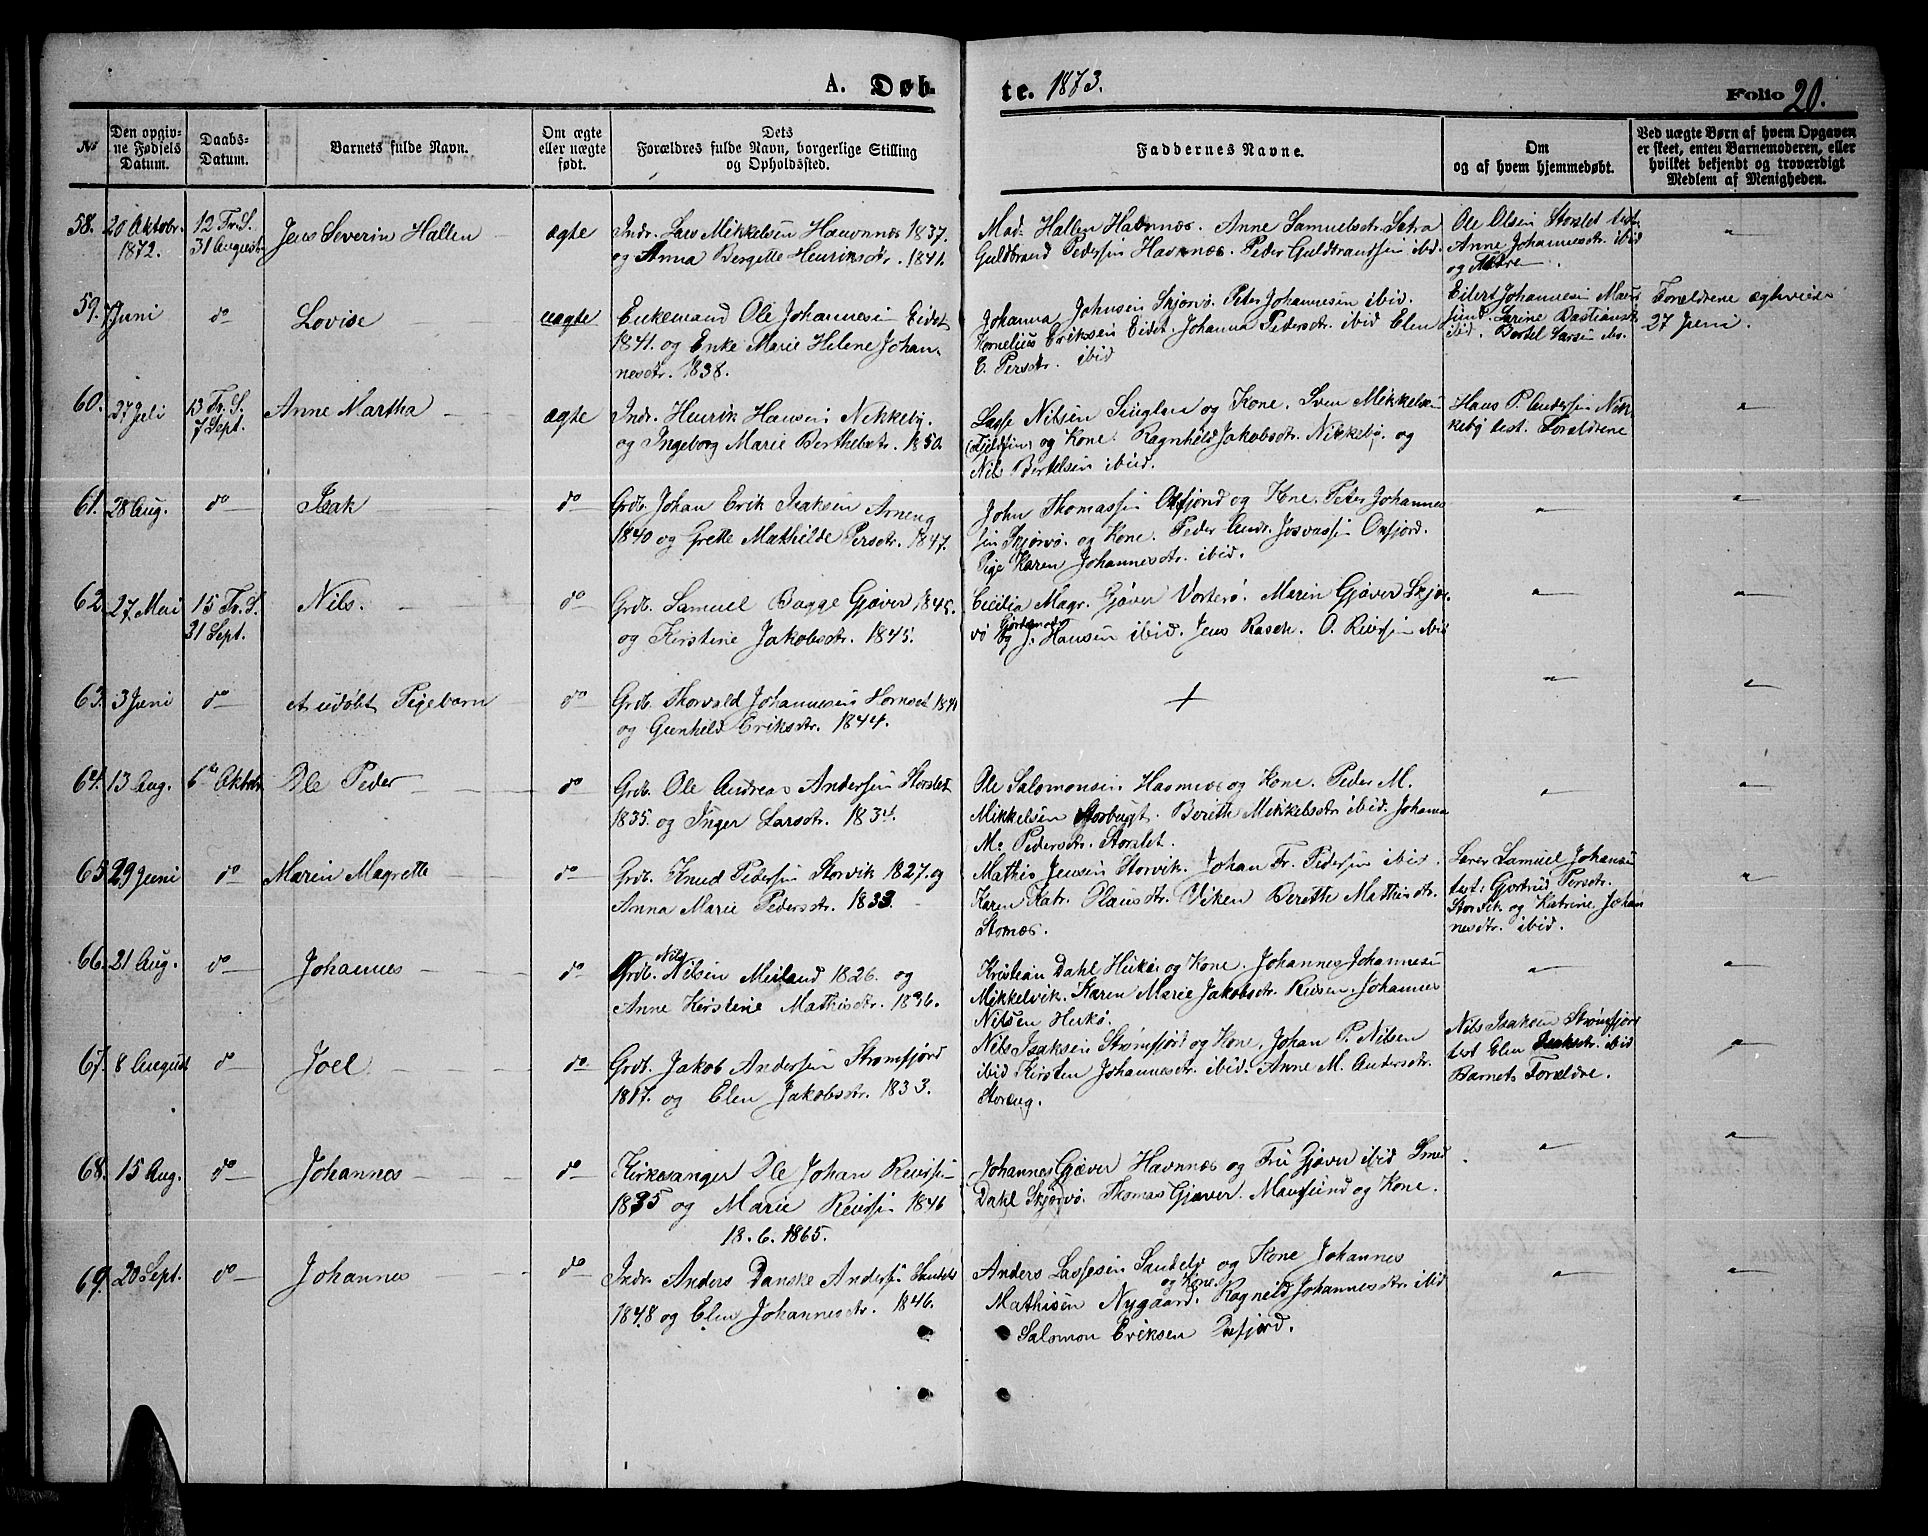 A. Døb-
te. 1873.
Folio 20.
No
Den opgiv-
ne Fødsels
Datum.
Daabs-
Datum.
Barnets fulde Navn.
Om ægte
eller uægte
født.
Dets
Forældres fulde Navn, borgerlige Stilling
og Opholdssted.
Faddernes Navne.
Om
og af hvem hjemmedøbt.
Ved uægte Børn af hvem Opgaven
er skeet, enten Barnemoderen, eller
hvilket bekjendt og troværdigt
Medlem af Menigheden.
58. 20 Oktobr.
1872.
12 Tr. S.
31 August
Jens Severin Hallen
ægte
Indr. Lars Mikkelsen Havnnæs 1837.
og Anna Bergette Henriksdtr. 1841.
Mad. Hallen Havnnæs. Anne Samuelsdtr.
Guldbrand Pedersen Havnnæs. Peder Guldbrandsen ibid.
Ole Olsen Storslet test.
Anne Johannesdtr. ibid
og
59. Juni
do
Lovise
uægte
Enkemand Ole Johannesen Eidet
1841. og Enke Marie Helene Johan-
nesdtr. 1838.
Johanna Johnsen Skjørvø. Peter Johannesen ibid.
Kornelius Eriksen Eidet. Johanna Pedersdtr. ibid Elen
E. Persdtr. ibid
Eilert Johannesen Maur
sund. Serine Bastiansdtr.
ibid. Bertel Larsen
Forældrene
27 Juni.
60. 27 Juli
13 Tr. S.
7 Sept.
Anne Martha
ægte
Indr. Henrik Hansen Nikkeby.
og Ingeborg Marie Berthelsdtr. 1850.
Lasse Nilsen og Kone. Sven Mikkelsen
og Kone. Ragnhild Jakobsdtr. Nikkeby. og
Nils Bertelsen ibid.
Hans P. Andersen Nik
keby test. Forældrene
61. 28 Aug.
do
Isak
do
Grdb. Johan Erik Isaksen Arneng
1840 og Grette Mathilde Persdtr. 1847.
John Thomassen Oxfjord og Kone. Peter Johannes
sen Skjørvø. og Kone. Peder Andr. Josvassen Oxfjord.
Pige Karen Johannesdtr. ibid.
62. 27 Mai
15 Tr. S.
31 Sept.
Nils.
do
Grdb. Samuel Bagge Gjæver 1845.
og Kirstine Jakobsdtr. 1845.
Cicilia Magr. Gjæver Vorterø. Marin Gjæver Skjør-
vø og J. Hansen ibid. Jens Rasch. O. Reiersen ibid
63. 3 Juni
do
et udøbt Pigebarn
do
Grdb. Thorvald Johannesen Hornset
og Gunhild Eriksdtr. 1844.
+
64. 13 Aug.
6te Oktobr
Ole Peder
do
Grdb. Ole Andreas Andersen Storslet
1835. og Inger Larsdtr. 1834.
Ole Salomonsen Havnnæs og Kone. Peder M.
Mikkelsen Storbugt. Bereth Mikkelsdtr. ibid. Johanna
M. Pedersdtr. Storslet.
65. 29 Juni
do
Maren Magrette
do
Grdb. Knud Pedersen Storvik 1827. og
Anna Marie Pedersdtr. 1833.
Mathis Jensen Storvik. Johan Fr. Pedersen ibid.
Karen Katr. Olausdtr. Viken Bereth Mathisdtr.
Stornæs.
Lærer Samuel Johansen
test: Gjertrud Persdtr.
Storvik og Katrine Johan
nesdtr. ibid.
66. 21 Aug.
do
Johannes
do
Grdb. Nils Nilsen Meiland 1826. og
Anne Kirstine Mathisdtr. 1836.
Kristian Dahl Hukø og Kone. Johannes Johannesen
Mikkelvik. Karen Marie Jakobsdtr. Reisen. Johannes
Nilsen Hukø.
67. 8 August
do
Joel
do
Grdb. Jakob Andersen Strømfjord
1817. og Elen Jakobsdtr. 1833.
Nils Isaksen Strømfjord og Kone. Johan P. Nilsen
ibid Kirsten Johannesdtr. ibid. Anne M. Andersdtr.
Storeng.
Nils Isaksen Strømfjord
test Elen Isaksdtr. ibid
Barnets Forældre.
68. 15 Aug.
do
Johannes
do
Kirkesanger Ole Johan Reiersen
1835 og Marie Reiersen 1846
13. 6. 1865.
Johannes Gjæver Havnnæs og Fru Gjæver ibid Smed
Dahl Skjørvø. Thomas Gjæver. Maursund og Kone.
69. 20 Sept.
do
Johannes
do
Indr. Anders Danske Andersen
1848 og Elen Johannesdtr. 1846.
Anders Lassesen og Kone Johannes
Mathisen Nygaard. og Kone. Ragnild Johannesdtr. ibid
Salomon Eriksen Oxfjord.